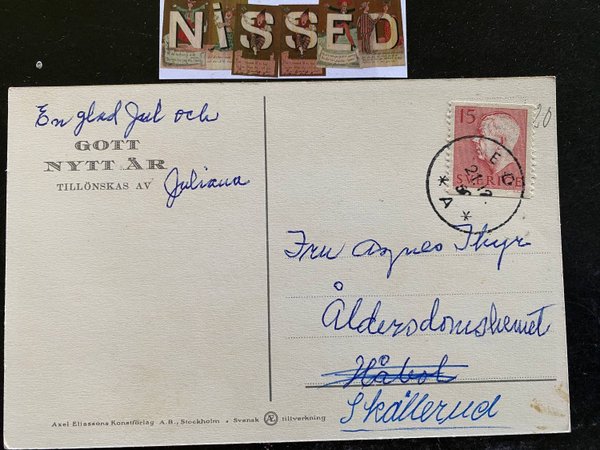 NiSSED
En glad Jul och
GOTT
NYTT ÅR
TILLÖNSKAS AV Juliana
15
SVERIGE
20
Fru Agnes Thyr
Åldersdomshemet
Håbol
Skållerud
Axel Eliassons Konstförlag A.B., Stockholm . Svensk Æ tillverkning